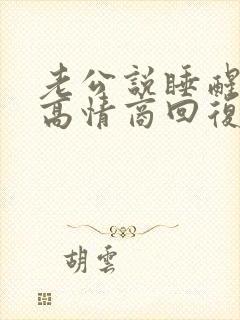 老公説睡醒
高情商回復
胡雲